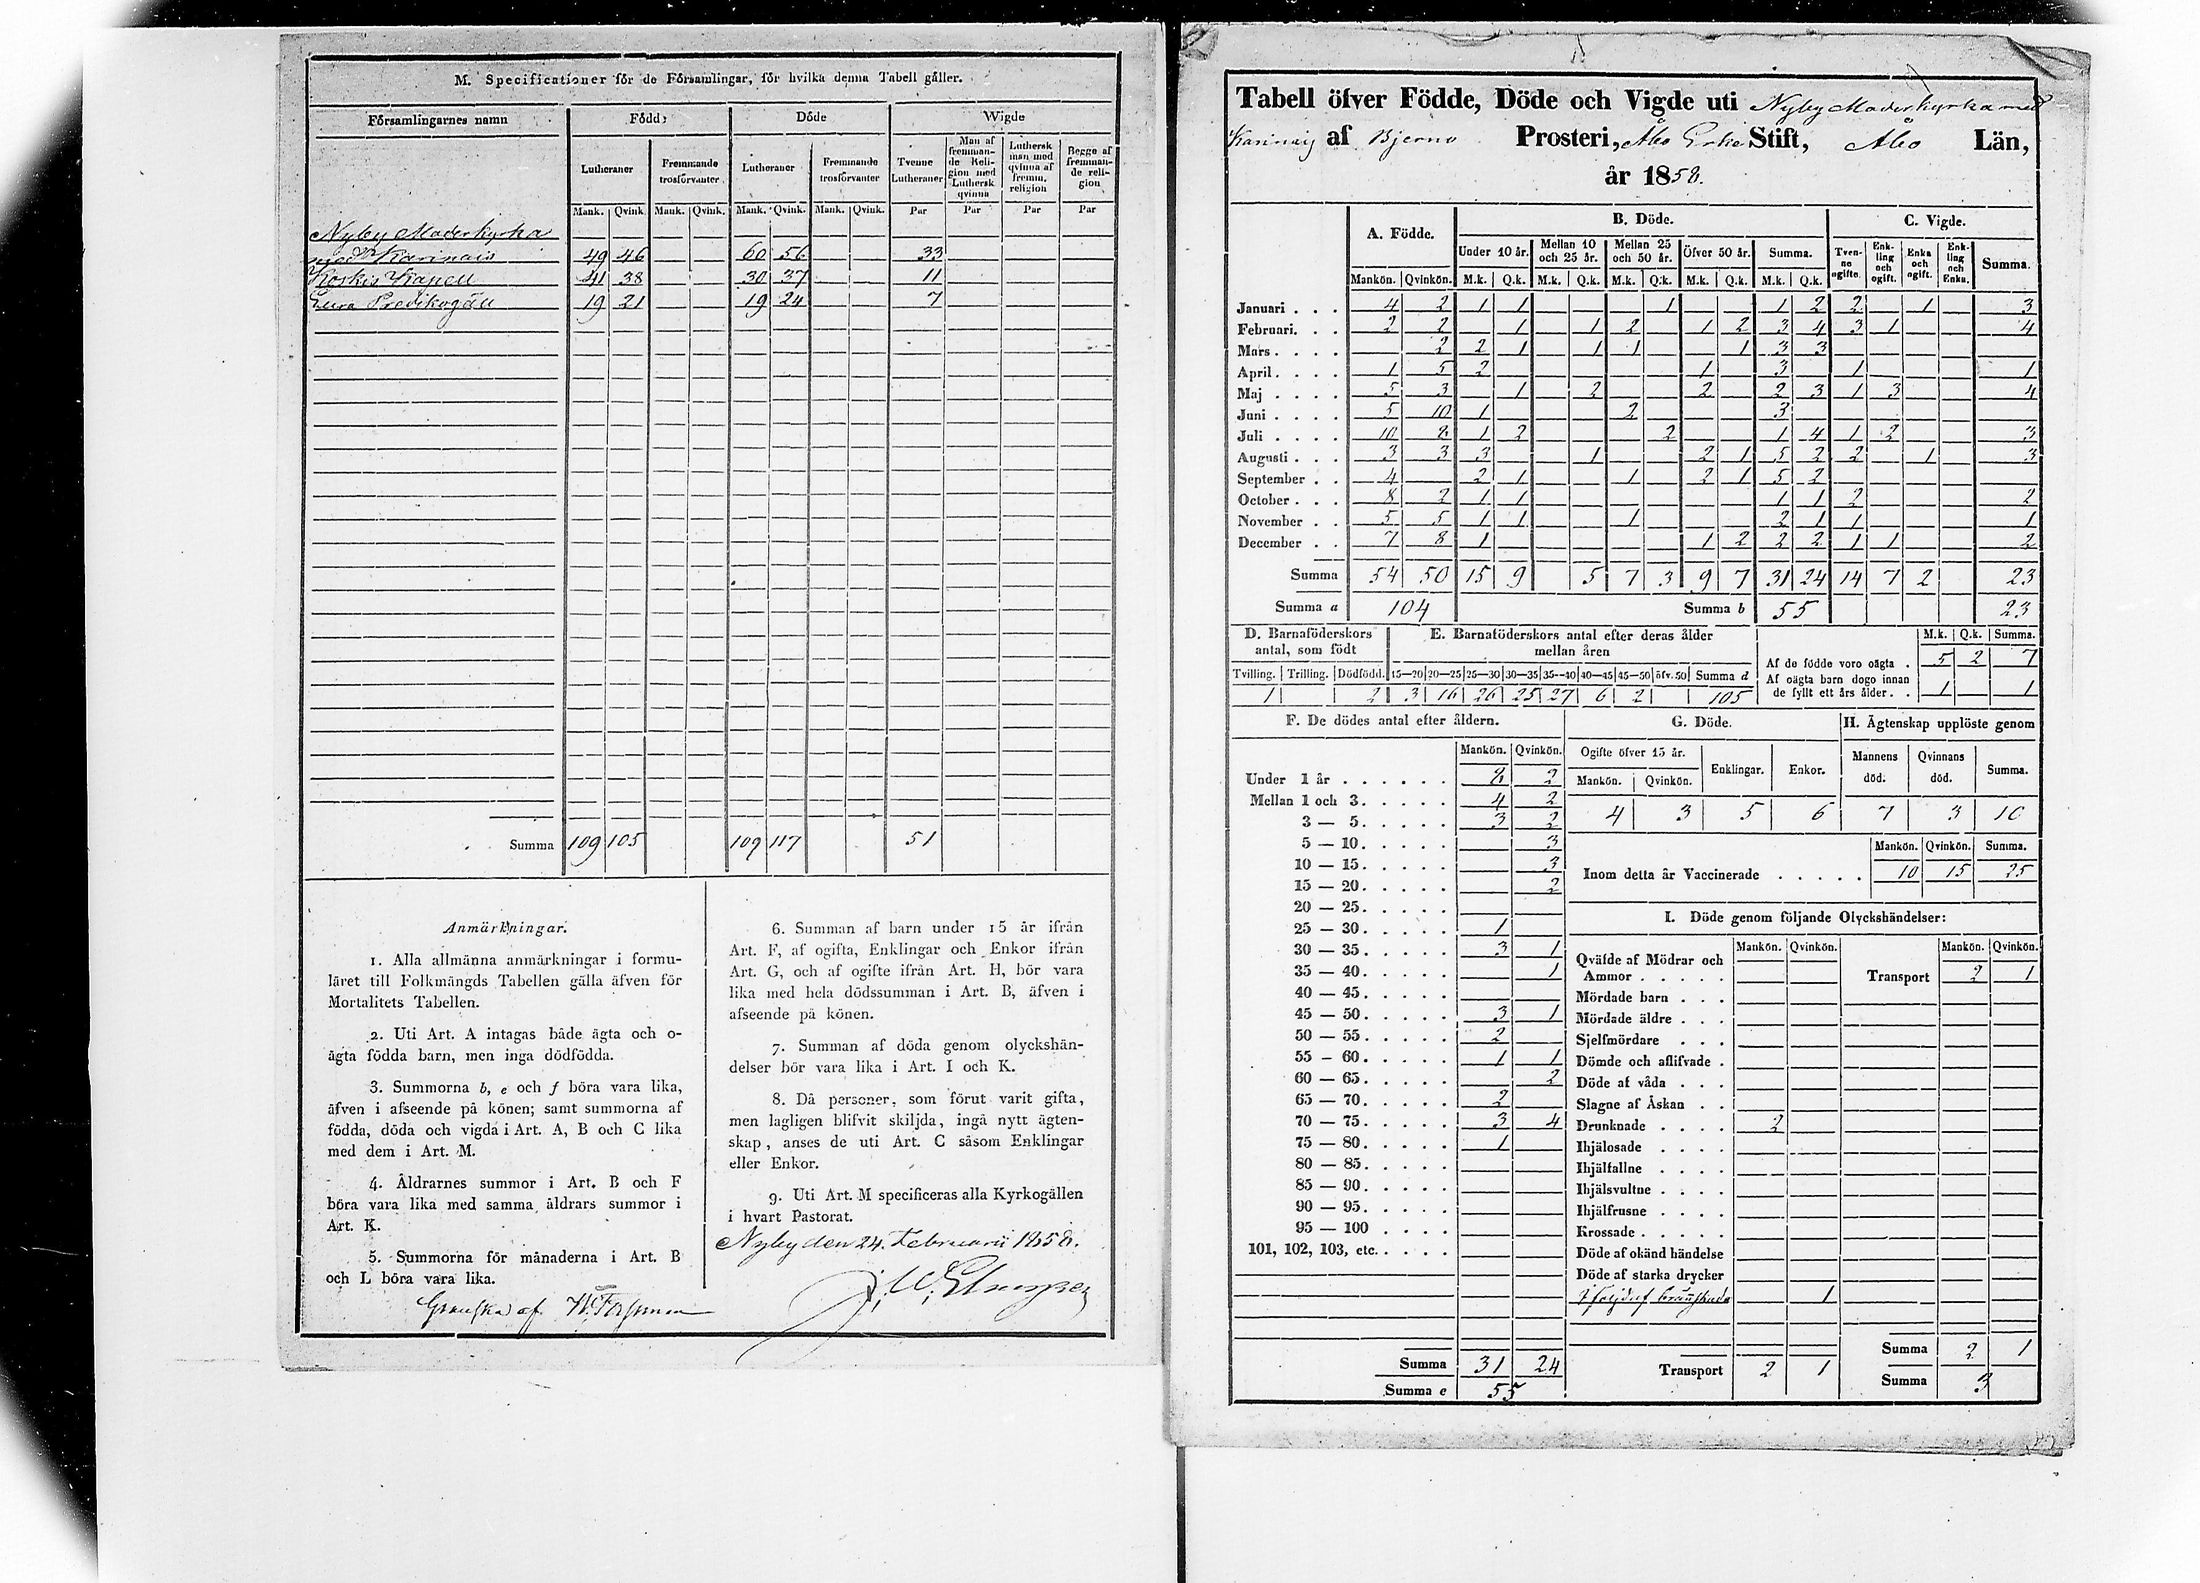 M. Specificationer för de Församlingar, för hvilka denna Tabell gäller.
Församlingarnes namn | Födde | Döde | Wigde
Lutheraner | Fremmande trosförvanter | Lutheraner | Fremmande trosförvanter | Tvenne Lutheraner | Man af fremmande Religion med Luthersk qvinna | Luthersk man med qvinna af fremm. religion | Begge af fremmande religion
Mank. | Qvink. | Mank. | Qvink. | Mank. | Qvink. | Mank. | Qvink. | Par | Par | Par | Par
Nyby Moderkyrka
med Karinais 49 46 60 56 33
Koskis Kapell 41 38 30 37 11
Eura Predikogäll 19 21 19 24 7
Summa 109 105 109 117 51
Anmärkningar.
1. Alla allmänna anmärkningar i formu-
läret till Folkmängds Tabellen gälla äfven för
Mortalitets Tabellen.
2. Uti Art. A intagas både ägta och o-
ägta födda barn, men inga dödfödda.
3. Summorna b, e och f böra vara lika,
äfven i afseende på könen; samt summorna af
födda, döda och vigda i Art. A, B och C lika
med dem i Art. M.
4. Åldrarnes summor i Art. B och F
böra vara lika med samma åldrars summor i
Art. K.
5. Summorna för månaderna i Art. B
och L böra vara lika.
6. Summan af barn under 15 år ifrån
Art. F, af ogifta, Enklingar och Enkor ifrån
Art. G, och af ogifte ifrån Art. H, bör vara
lika med hela dödssumman i Art. B, äfven i
afseende på könen.
7. Summan af döda genom olyckshän-
delser bör vara lika i Art. I och K.
8. Då personer, som förut varit gifta,
men lagligen blifvit skiljda, ingå nytt ägten-
skap, anses de uti Art. C såsom Enklingar
eller Enkor.
9. Uti Art. M specificeras alla Kyrkogällen
i hvart Pastorat.
Nyby den 24 Februarii 1858.
Granskad af
Tabell öfver Födde, Döde och Vigde uti Nyby Moderkyrka med
Karinais af Bjerno Prosteri, Åbo Erke Stift, Åbo Län,
år 1858.
A. Födde. | B. Döde. | C. Vigde.
Under 10 år. | Mellan 10 och 25 år. | Mellan 25 och 50 år. | Öfver 50 år. | Summa. | Tvenne ogifte. | Enkling och ogift. | Enka och ogift. | Enkling och Enka. | Summa.
Mankön. | Qvinkön. | M.k. | Q.k. | M.k. | Q.k. | M.k. | Q.k. | M.k. | Q.k. | M.k. | Q.k.
Januari . . . 4 2 1 1 1 1 2 2 1 3
Februari. . . 2 2 1 1 2 1 2 3 4 3 1 4
Mars . . . . 2 2 1 1 1 1 3 3
April . . . . 1 5 2 1 3 1 1
Maj . . . . 5 3 1 2 2 2 3 1 3 4
Juni . . . . 5 10 1 2 3
Juli . . . . 10 8 1 2 2 1 4 1 2 3
Augusti . . . 3 3 3 1 2 1 5 2 2 1 3
September . . 4 2 1 1 2 1 5 2
October . . . 8 2 1 1 1 1 2 2
November . . 5 5 1 1 1 2 1 1 1
December . . 7 8 1 1 2 2 2 1 1 2
Summa 54 50 15 9 5 7 3 9 7 31 24 14 7 2 23
Summa a 104 Summa b 55 23
D. Barnaföderskors antal, som född
E. Barnaföderskors antal efter deras ålder mellan åren
Tvilling. | Trilling. | Dödfödd. | 15—20 | 20—25 | 25—30 | 30—35 | 35—40 | 40—45 | 45—50 | öfv. 50 | Summa d
1 2 3 16 26 25 27 6 2 105
M.k. | Q.k. | Summa.
Af de födde voro oägta . 5 2 7
Af oägta barn dogo innan
de fyllt ett års ålder . . 1 1
F. De dödes antal efter åldern.
Mankön. | Qvinkön.
Under 1 år . . . . . . 8 2
Mellan 1 och 3. . . . . 4 2
3 — 5. . . . . 3 2
5 — 10. . . . . 3
10 — 15. . . . . 3
15 — 20. . . . . 2
20 — 25. . . . .
25 — 30. . . . . 1
30 — 35. . . . . 3 1
35 — 40. . . . . 1
40 — 45. . . . .
45 — 50. . . . . 3 1
50 — 55. . . . . 2
55 — 60. . . . . 1 1
60 — 65. . . . . 2
65 — 70. . . . . 2
70 — 75. . . . . 3 4
75 — 80. . . . . 1
80 — 85. . . . .
85 — 90. . . . .
90 — 95. . . . .
95 — 100 . . . .
101, 102, 103, etc. . . . .
Summa 31 24
Summa e 55
G. Döde.
Ogifte öfver 15 år. | Enklingar. | Enkor.
Mankön. | Qvinkön.
4 3 5 6
H. Ägtenskap upplöste genom
Mannens död. | Qvinnans död. | Summa.
7 3 10
Mankön. | Qvinkön. | Summa.
Inom detta år Vaccinerade . . . . . 10 15 25
I. Döde genom följande Olyckshändelser:
Mankön. | Qvinkön. | Mankön. | Qvinkön.
Qväfde af Mödrar och
Ammor . . . . . Transport 2 1
Mördade barn . . .
Mördade äldre . . .
Sjelfmördare . . .
Dömde och aflifvade .
Döde af våda . . .
Slagne af Åskan . .
Drunknade . . . . 2
Ihjälosade . . . .
Ihjälfallne . . . .
Ihjälsvultne . . . .
Ihjälfrusne . . . .
Krossade . . . . .
Döde af okänd händelse
Döde af starka drycker
I följd af brännskada 1
Transport 2 1
Summa 2 1
Summa 3